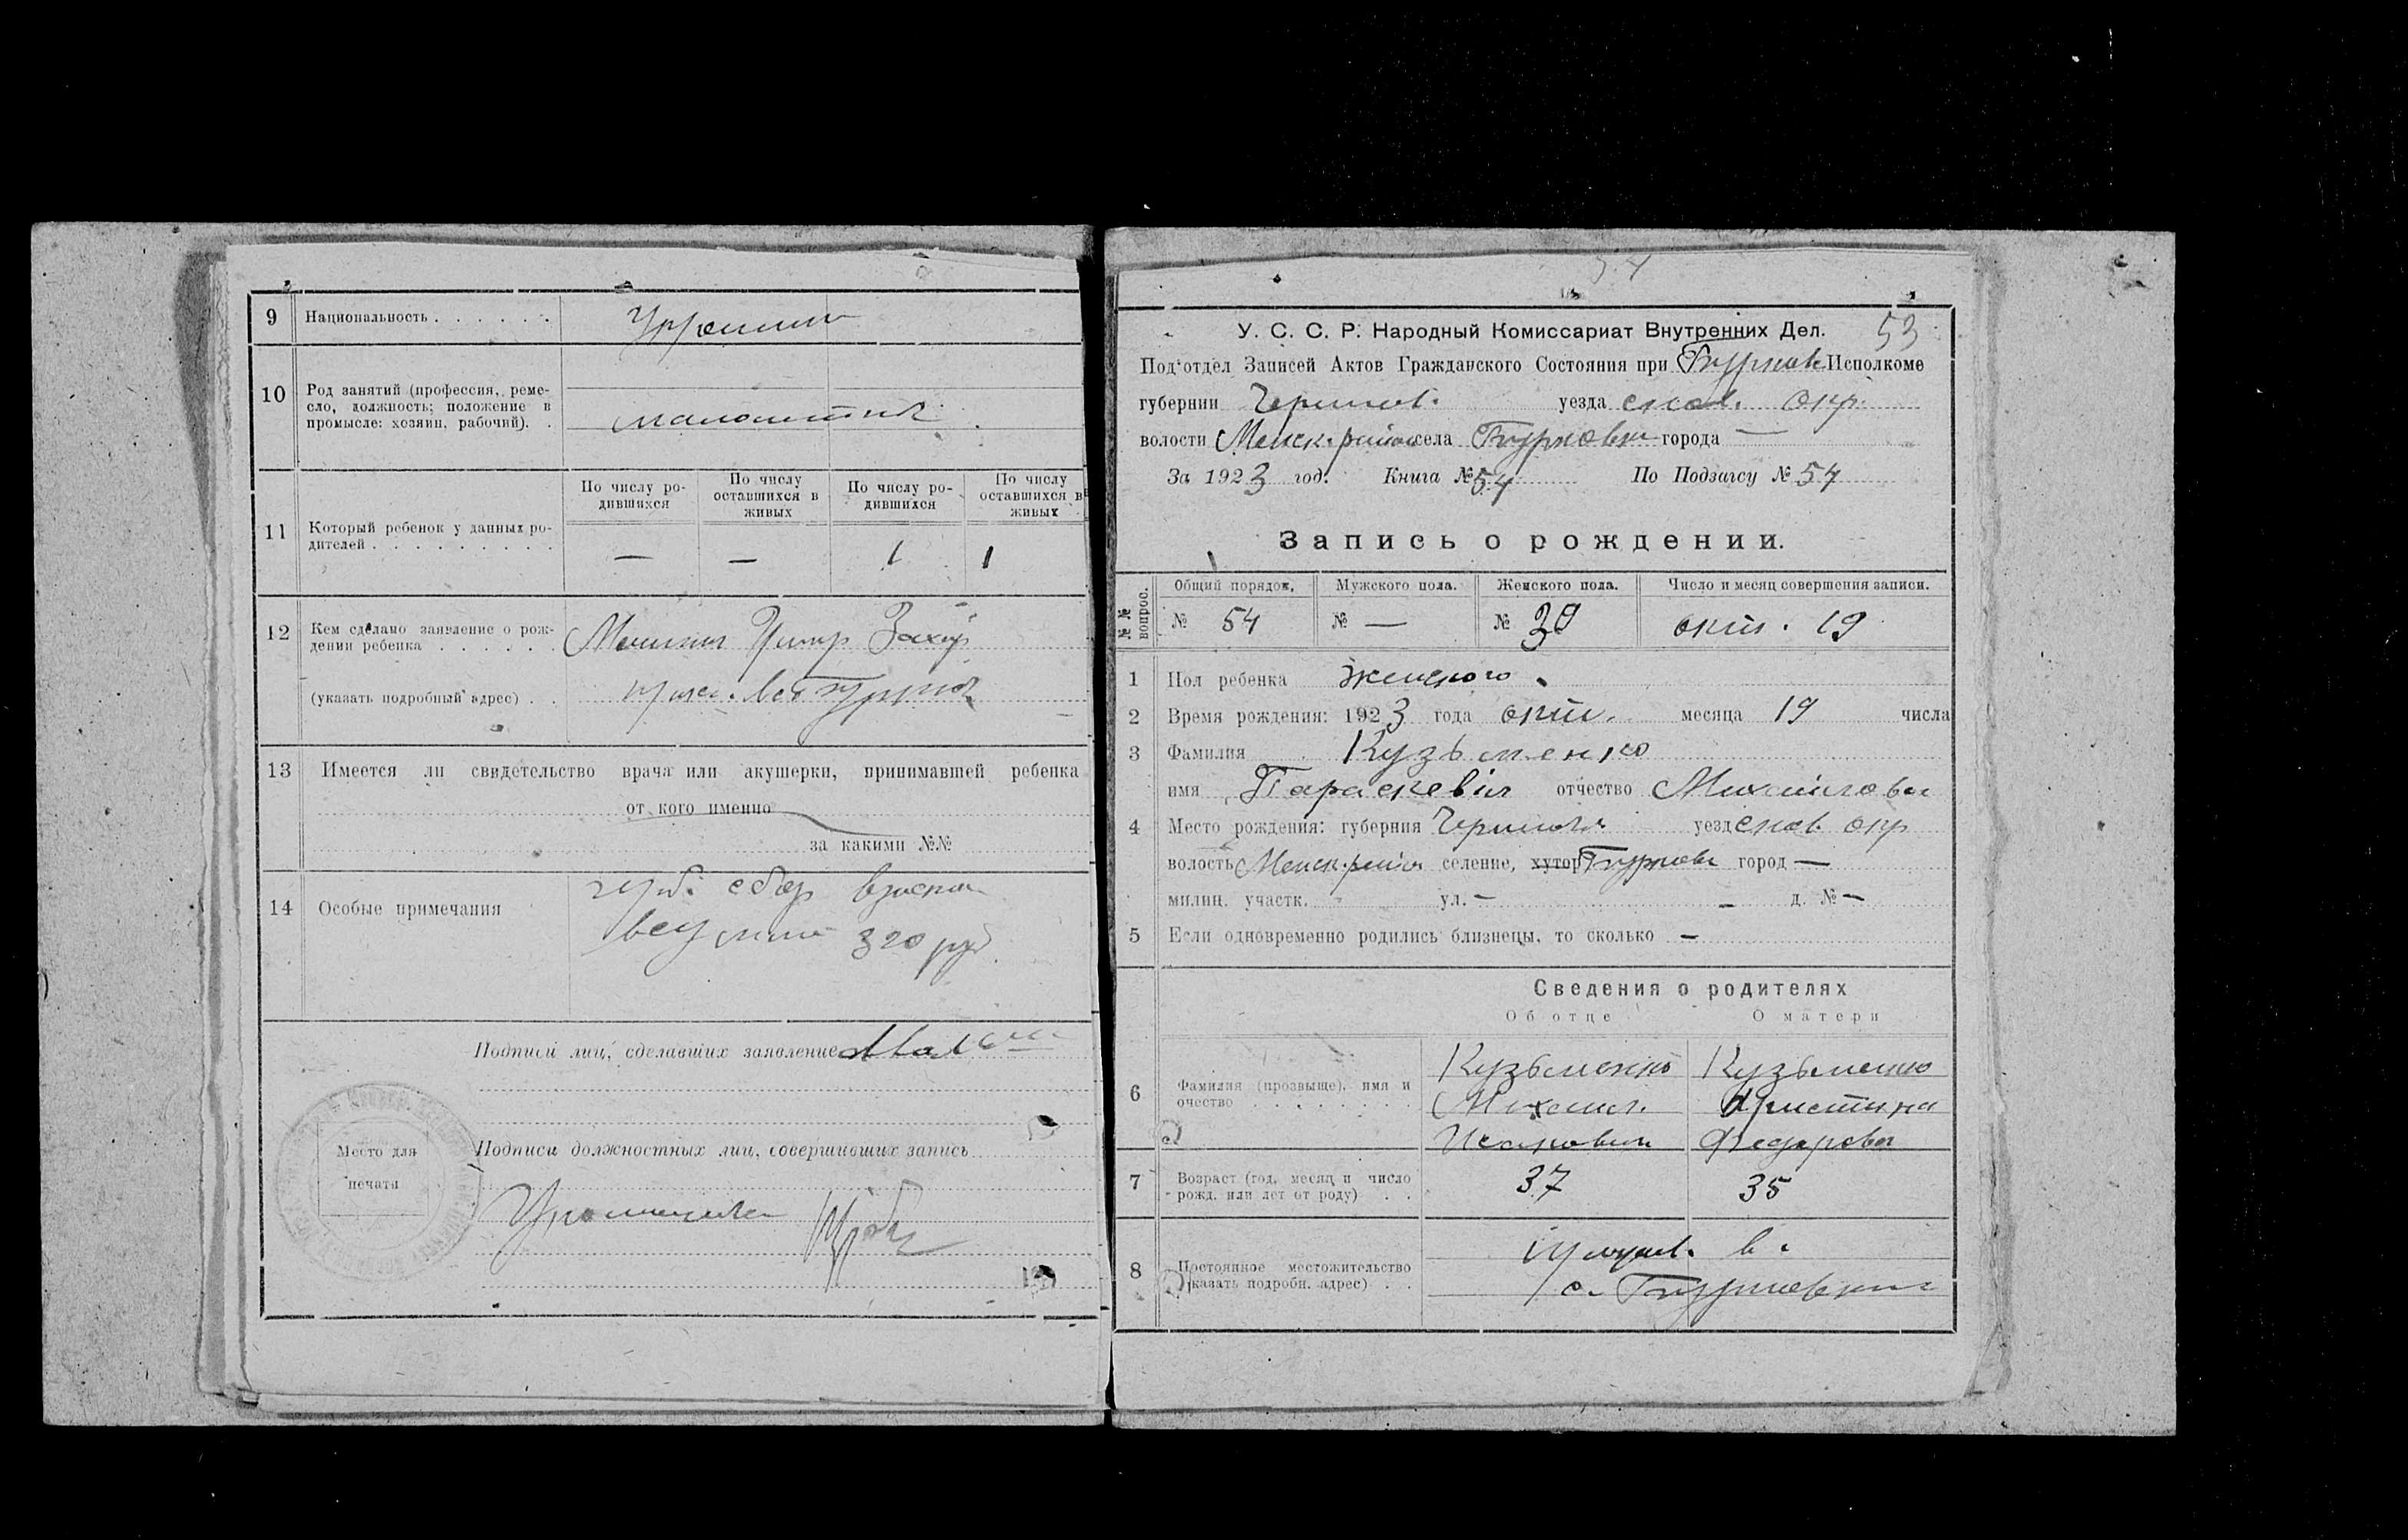 9 Национальность . . . . . .
10 Род занятий (профессия, реме-
сло, должность; положение в
промысле: хозяин, рабочий). .
По числу ро-
дившихся
По числу
оставшихся в
живых
По числу ро-
дившихся
По числу
оставшихся в
живых
11 Который ребенок у данных ро-
дителей . . . . . . . . . .
— — 1 1
12 Кем сделано заявление о рож-
дении ребенка . . . . . .
(указать подробный адрес) . .
13 Имеется ли свидетельство врача или акушерки, принимавшей ребенка
от кого именно
за какими №№
14 Особые примечания
сбор
320 руб.
Подписи лиц, сделавших заявление
Место для
печати
Подписи должностных лиц, совершивших запись
54
53
У. С. С. Р. Народный Комиссариат Внутренних Дел.
Под'отдел Записей Актов Гражданского Состояния при Бурков Исполкоме
губернии Чернигов. уезда снов. окр.
волости Менск. район села Бурковки города —
За 1923 год. Книга № 54 По Подзагсу № 54
Запись о рождении.
№№ вопрос.
Общий порядок, Мужского пола. Женского пола. Число и месяц совершения записи.
№ 54 № — № 39 окт. 19
1 Пол ребенка женского
2 Время рождения: 1923 года окт. месяца 19 числа
3 Фамилия Кузьменко
имя Параскевія отчество Михайлова
4 Место рождения: губерния Чернигов уезд снов. окр
волость Менск. район селение, хутор Бурковка город —
милиц. участк. - ул. — д. № —
5 Если одновременно родились близнецы, то сколько —
Сведения о родителях
Об отце О матери
6 Фамилия (прозвыще), имя и
очество . . . . . . . .
Кузьменко Кузьменко
Михаил Христина
Исакович Федорова
7 Возраст (год, месяц и число
рожд. или лет от роду) . .
37 35
8 Постоянное местожительство
(указать подробн. адрес) . .
с. Бурковки